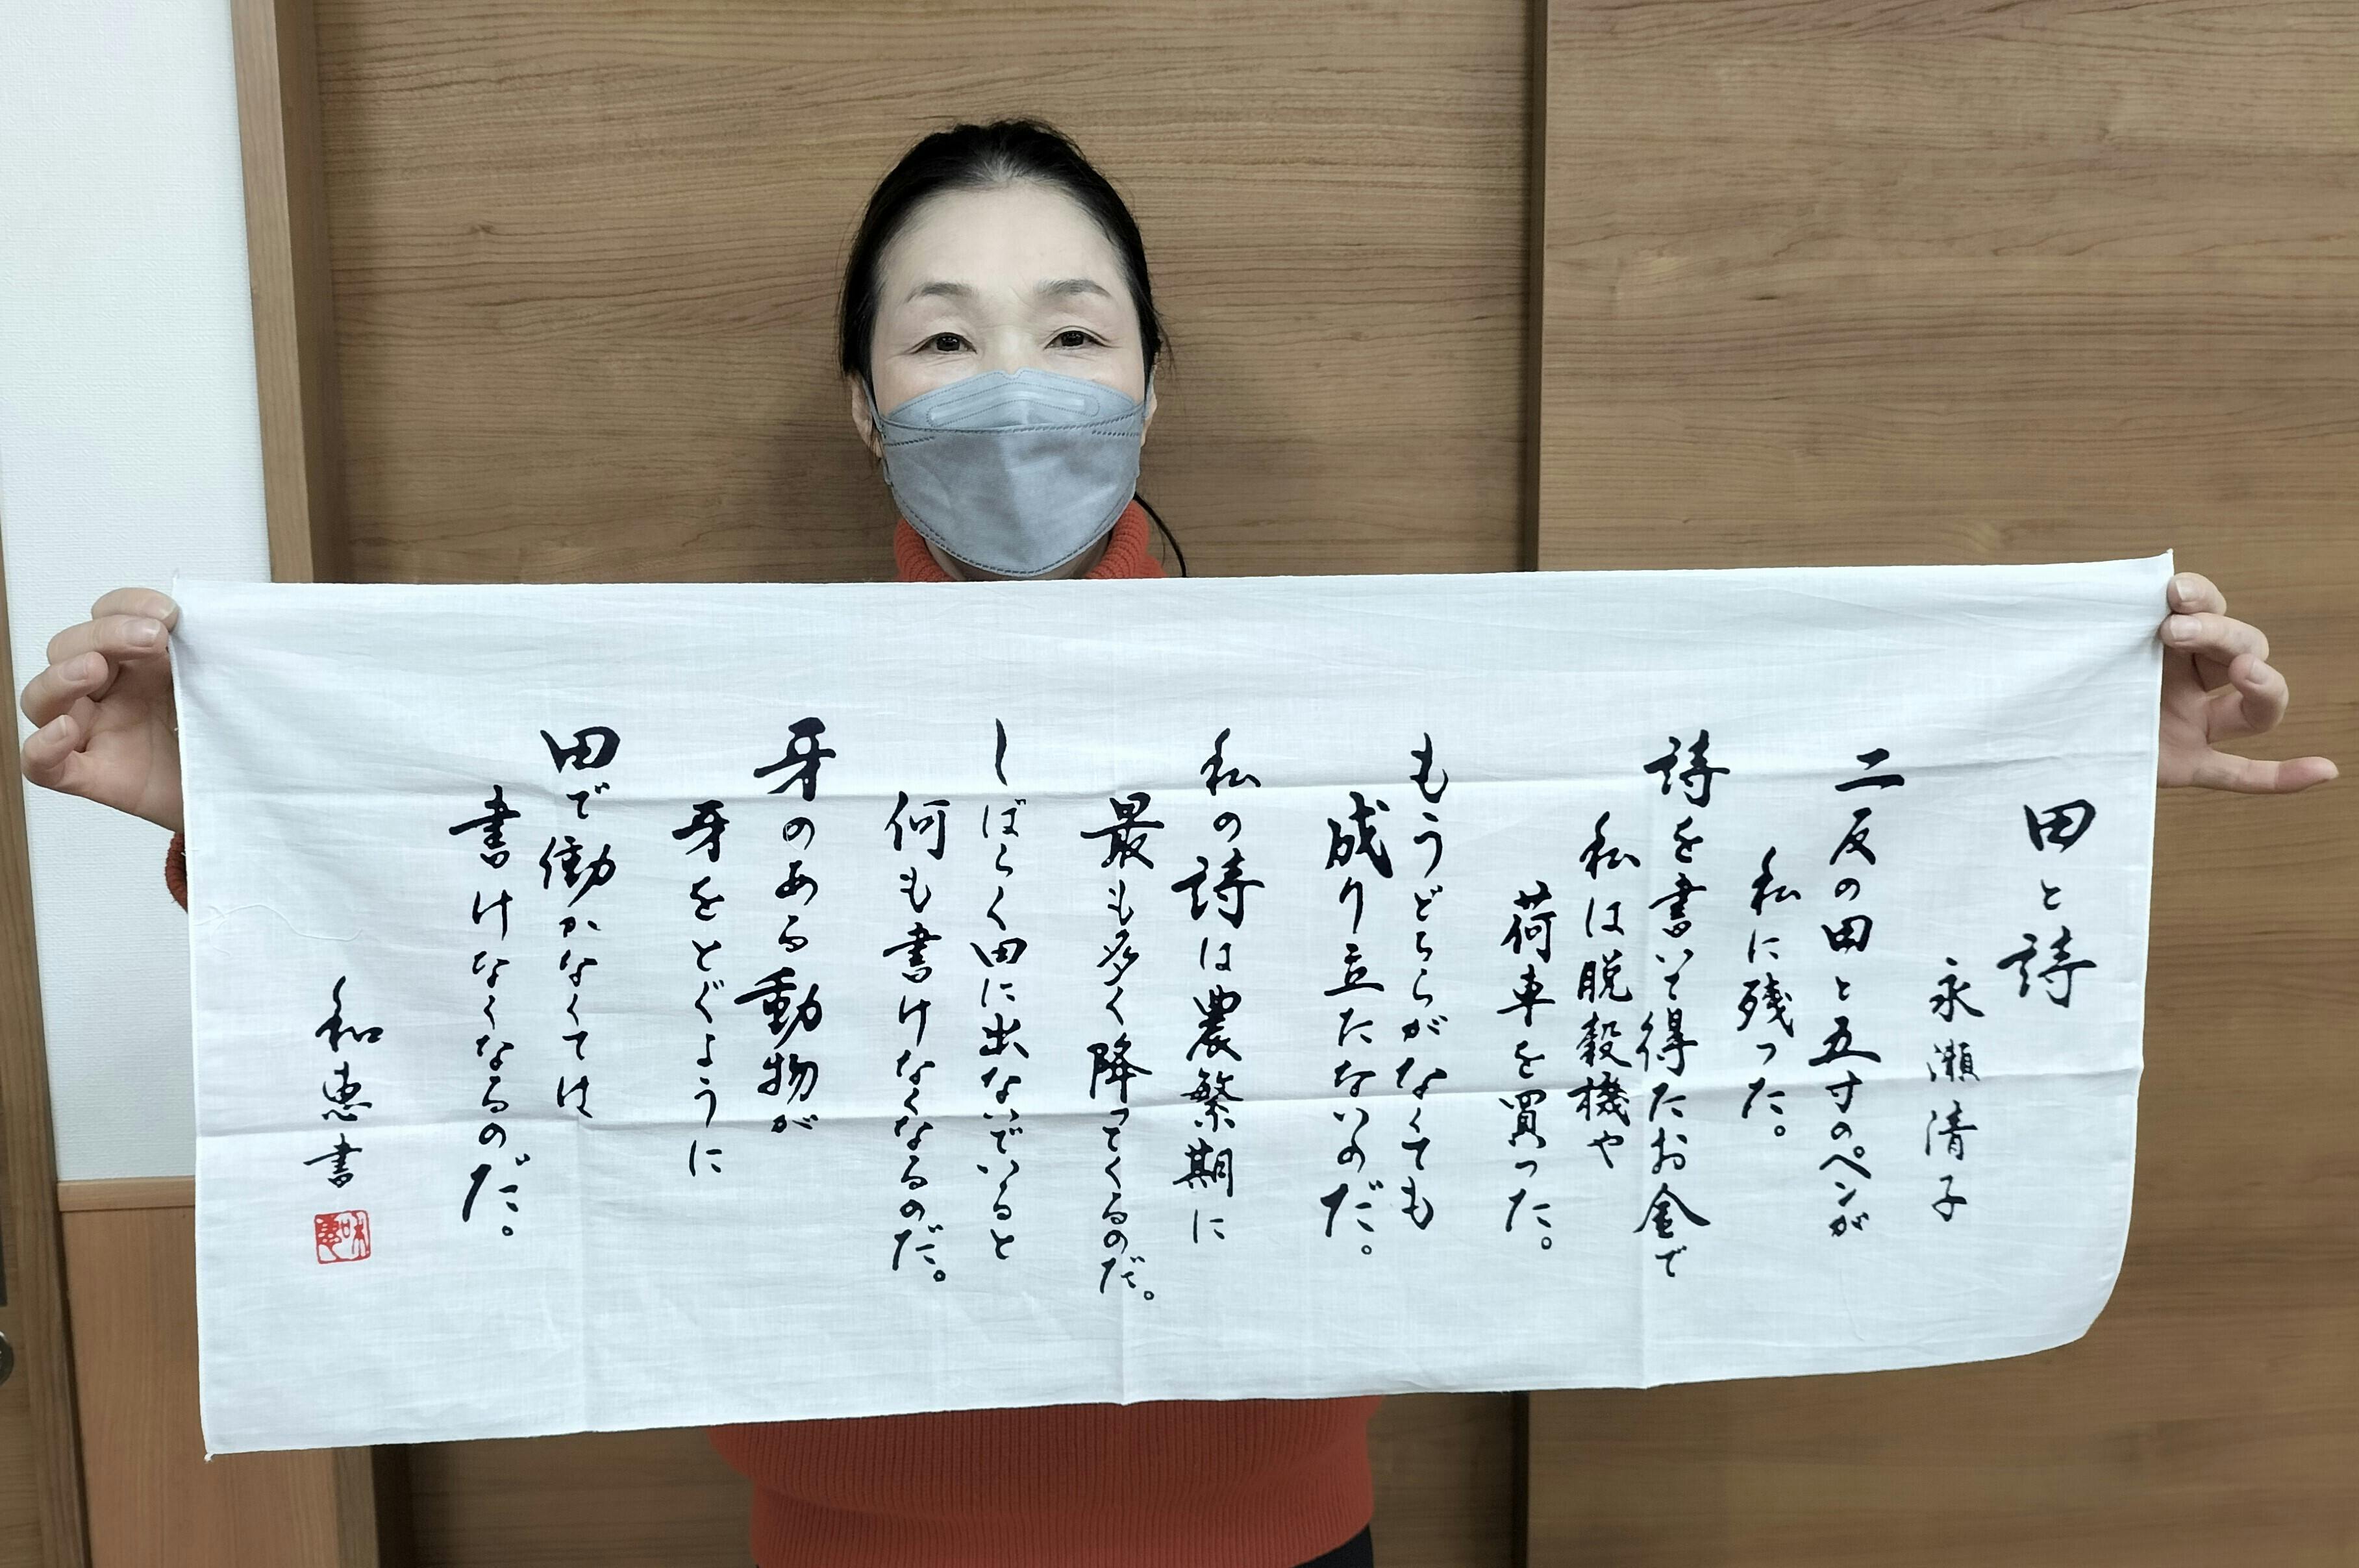 田と詩
永瀬清子
二反の田と五寸のペンが
私に残った。
詩を書いて得たお金で
私は脱穀機や
荷車を買った。
もうどちらがなくても
成り立たないのだ。
私の詩は農繁期に
最も多く降ってくるのだ。
しばらく田に出ないでいると
何も書けなくなるのだ。
牙のある動物が
牙をとぐように
田で働かなくては
書けなくなるのだ。
和恵書